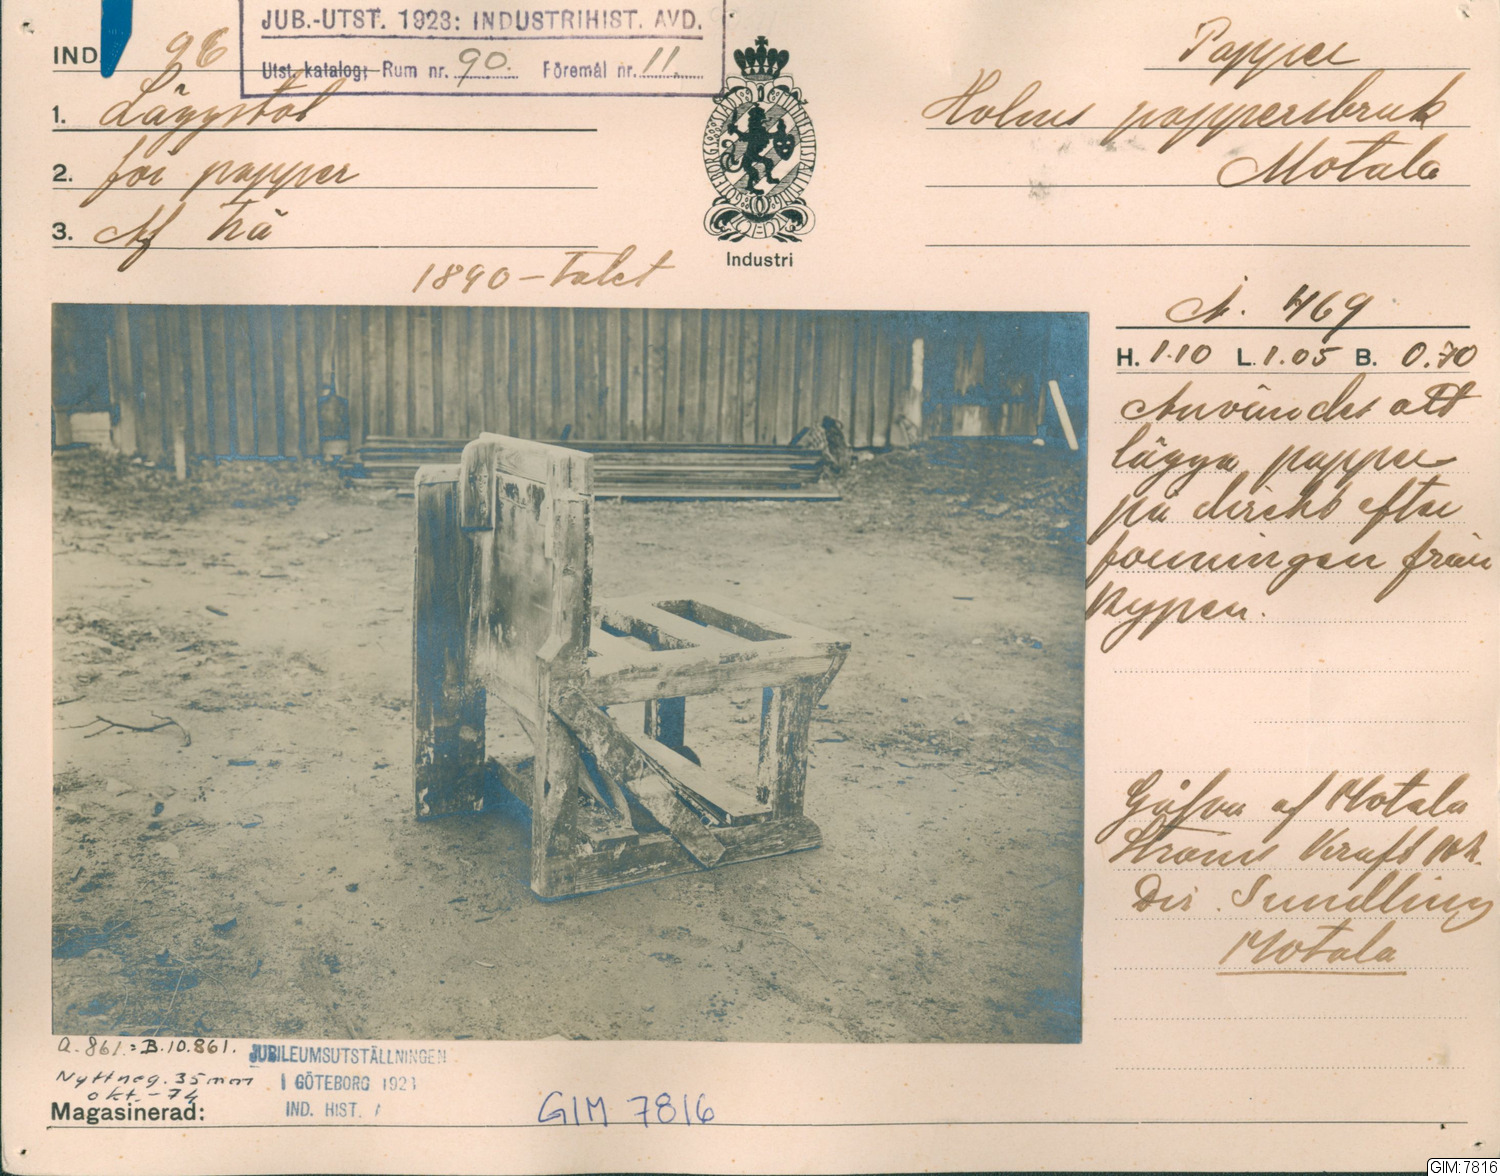 JUB.-UTST. 1923: INDUSTRIHIST. AVD.
Utst. katalog; Rum nr. 90. Föremål nr. 11
IND. 98
1. Läggstol
2. för papper
3. Af trä
1890-talet
Industri
Papper
Holms pappersbruk
Motala
A. 469
H. 1.10 L. 1.05 B. 0.70
Användes att
lägga papper
på direkt efter
formningen från
Kypen.
Gåfva af Motala
Ströms Kraft
Dir. Sundling
Motala
a. 861. = B.10.861.
Nytt neg. 35 mm
okt. -74
JUBILEUMSUTSTÄLLNINGEN
I GÖTEBORG 1923
IND. HIST.
Magasinerad:
GIM 7816
GIM:7816